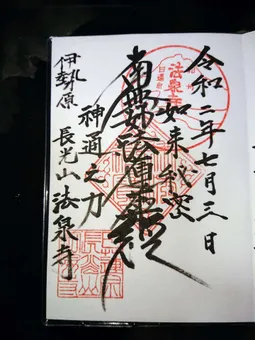 令和二年七月三日
如来秘密
南無妙法蓮華経
神通之力
伊勢原 長光山 法泉寺
法泉寺